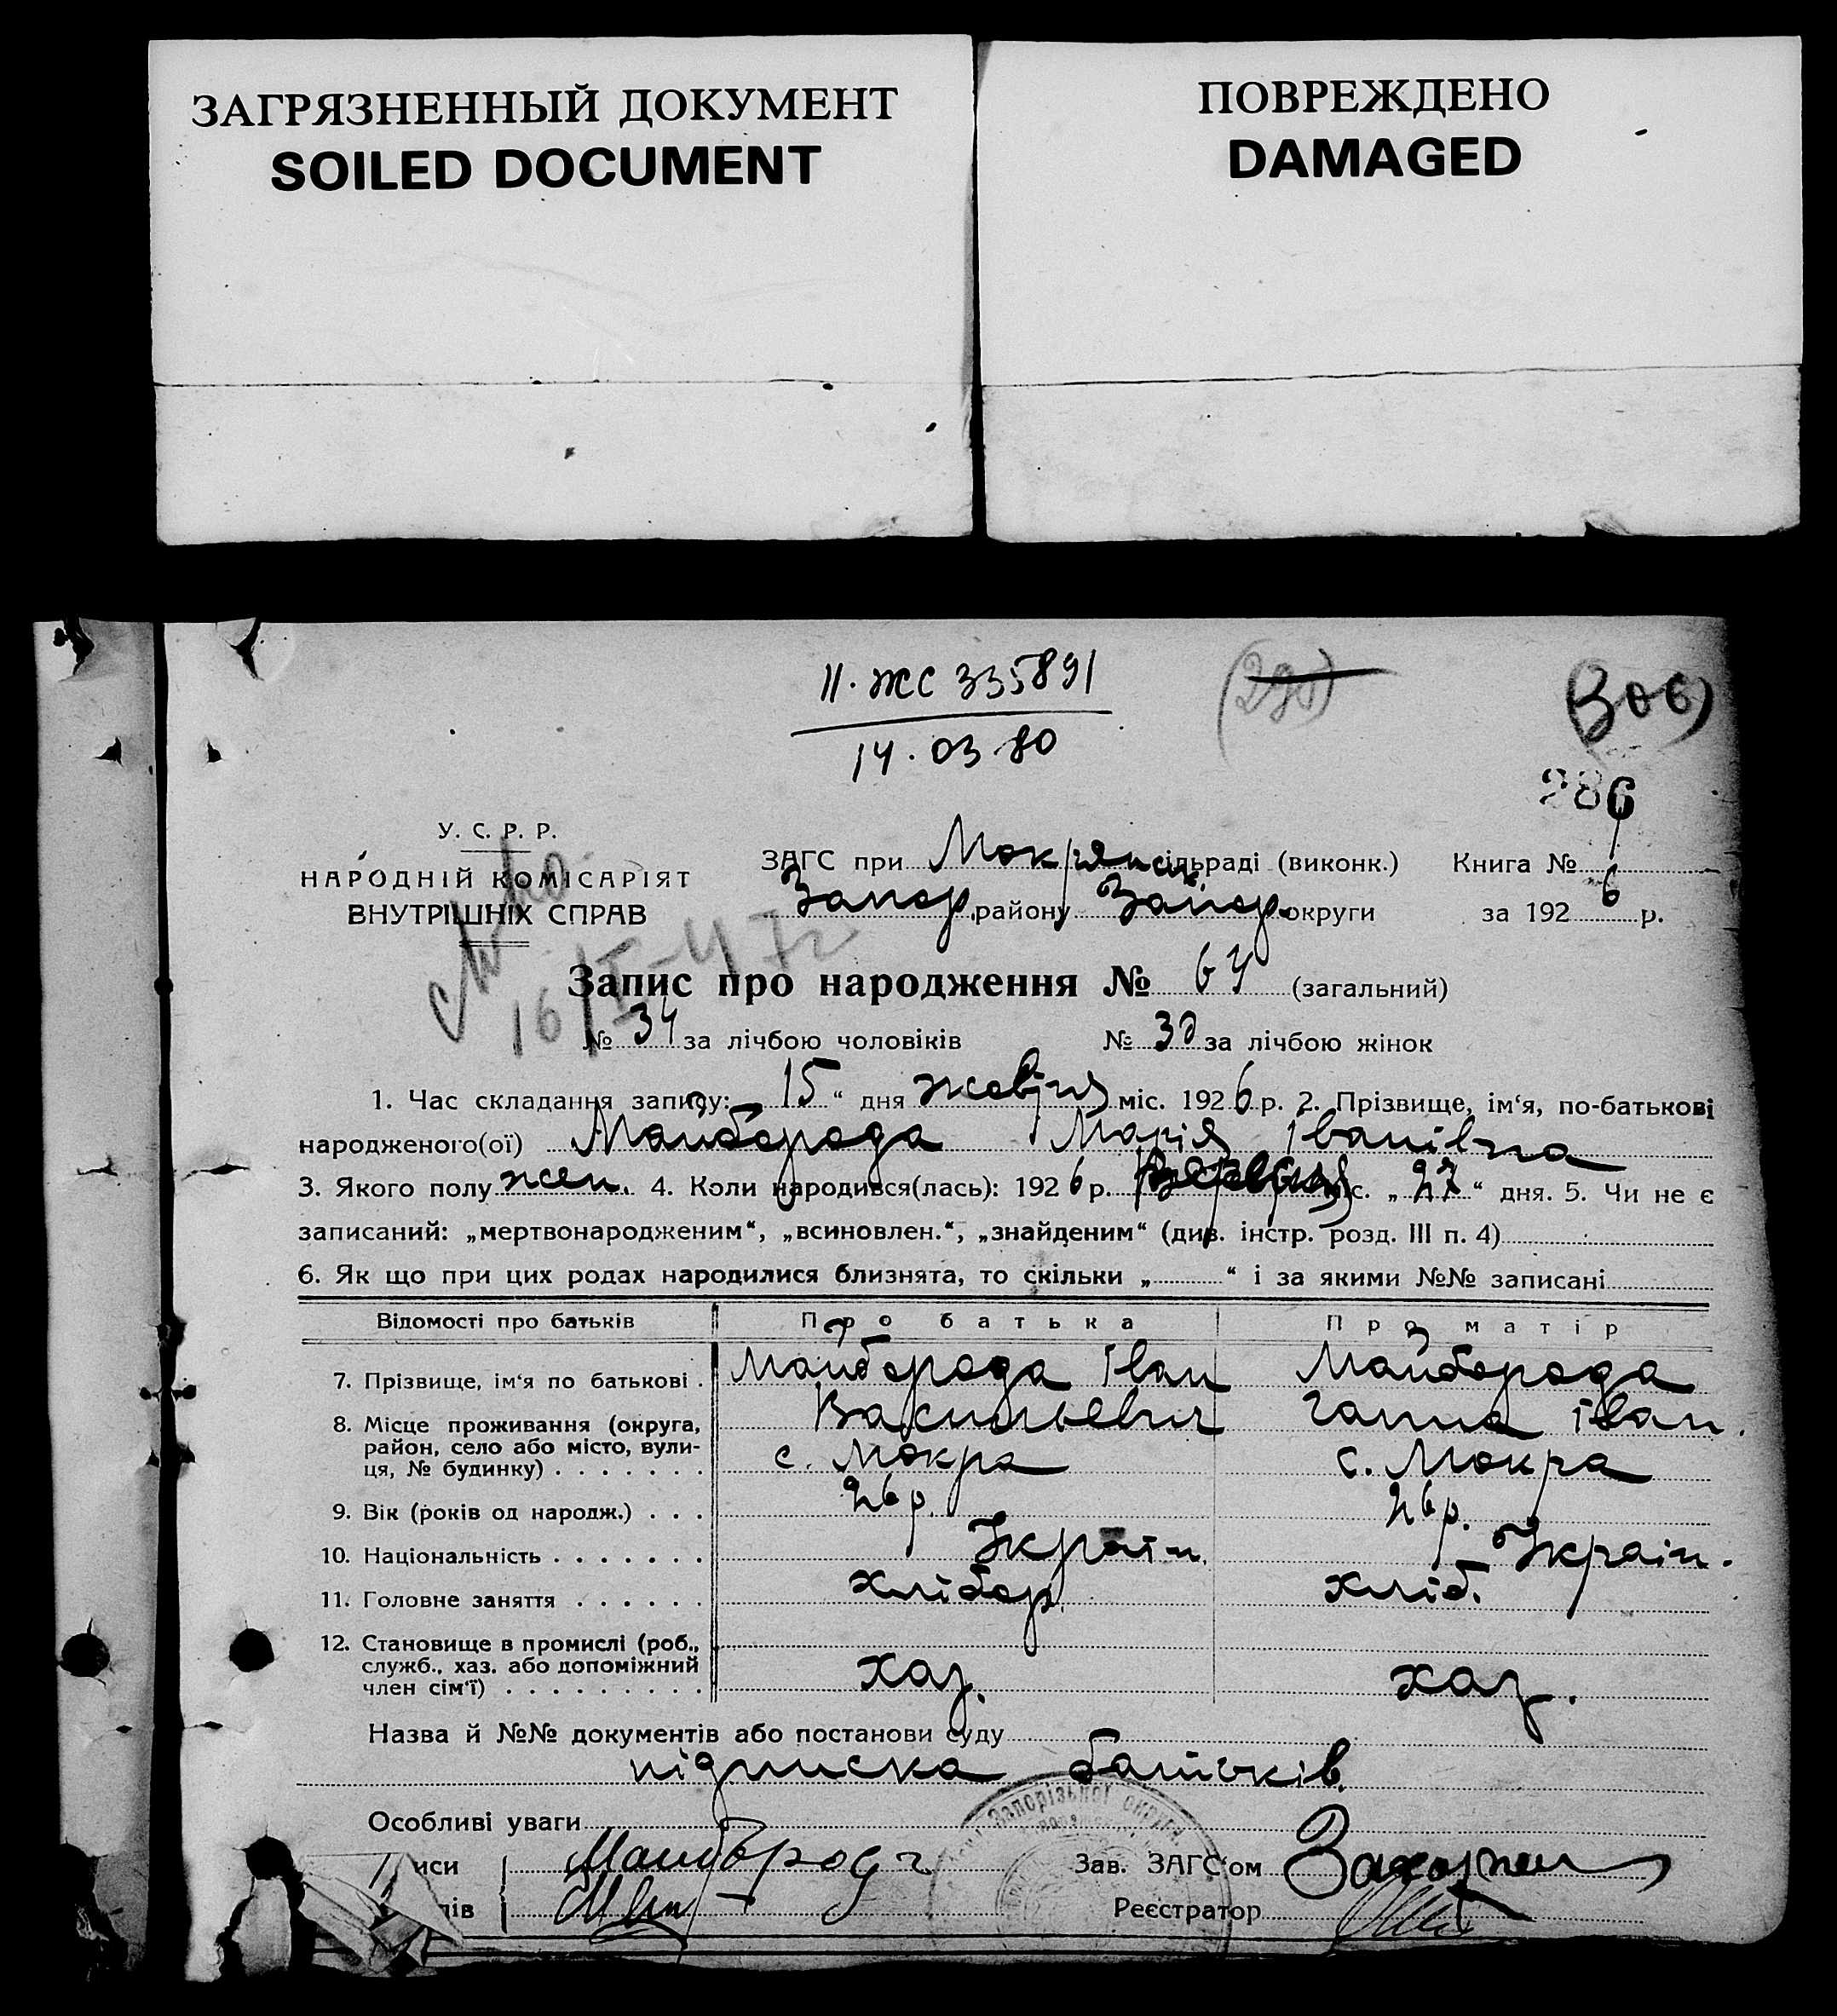 ЗАГРЯЗНЕННЫЙ ДОКУМЕНТ
SOILED DOCUMENT
ПОВРЕЖДЕНО
DAMAGED
II-ЖС 335891
14.03.80
(306)
286
У. С. Р. Р.
НАРОДНІЙ КОМІСАРІЯТ
ВНУТРІШНІХ СПРАВ
ЗАГС при Мокрянськ сільраді (виконк.) Книга №
Запор. району Запор. округи за 1926 р.
16/І-47г
Запис про народження № 64 (загальний)
№ 34 за лічбою чоловіків № 30 за лічбою жінок
1. Час складання запису: „15“ дня жовтня міс. 1926 р. 2. Прізвище, ім‘я, по-батькові
народженого(ої) Майборода Марія Іванівна
3. Якого полу жен. 4. Коли народився(лась): 1926 р. міс. „27“ дня. 5. Чи не є
записаний: „мертвонародженим“, „всиновлен.“, „знайденим“ (див. інстр. розд. III п. 4)
6. Як що при цих родах народилися близнята, то скільки „ “ і за якими №№ записані
Відомості про батьків Про батька Про матір
7. Прізвище, ім‘я по батькові . Майборода Іван Майборода
8. Місце проживання (округа, Васильевич Ганна Іван.
район, село або місто, вули- с. Мокра с. Мокра
ця, № будинку) . . . . . . .
9. Вік (років од народж.) . . . 26 р. 26 р.
10. Національність . . . . . . . Україн. Україн.
11. Головне заняття . . . . . . хлібор. хліб.
12. Становище в промислі (роб.,
служб., хаз. або допоміжний хаз. хаз.
член сім‘ї) . . . . . . . . .
Назва й №№ документів або постанови суду
підписка батьків.
Особливі уваги
иси Майборода Зав. ЗАГС‘ом
ів Реєстратор
Запорізької округи